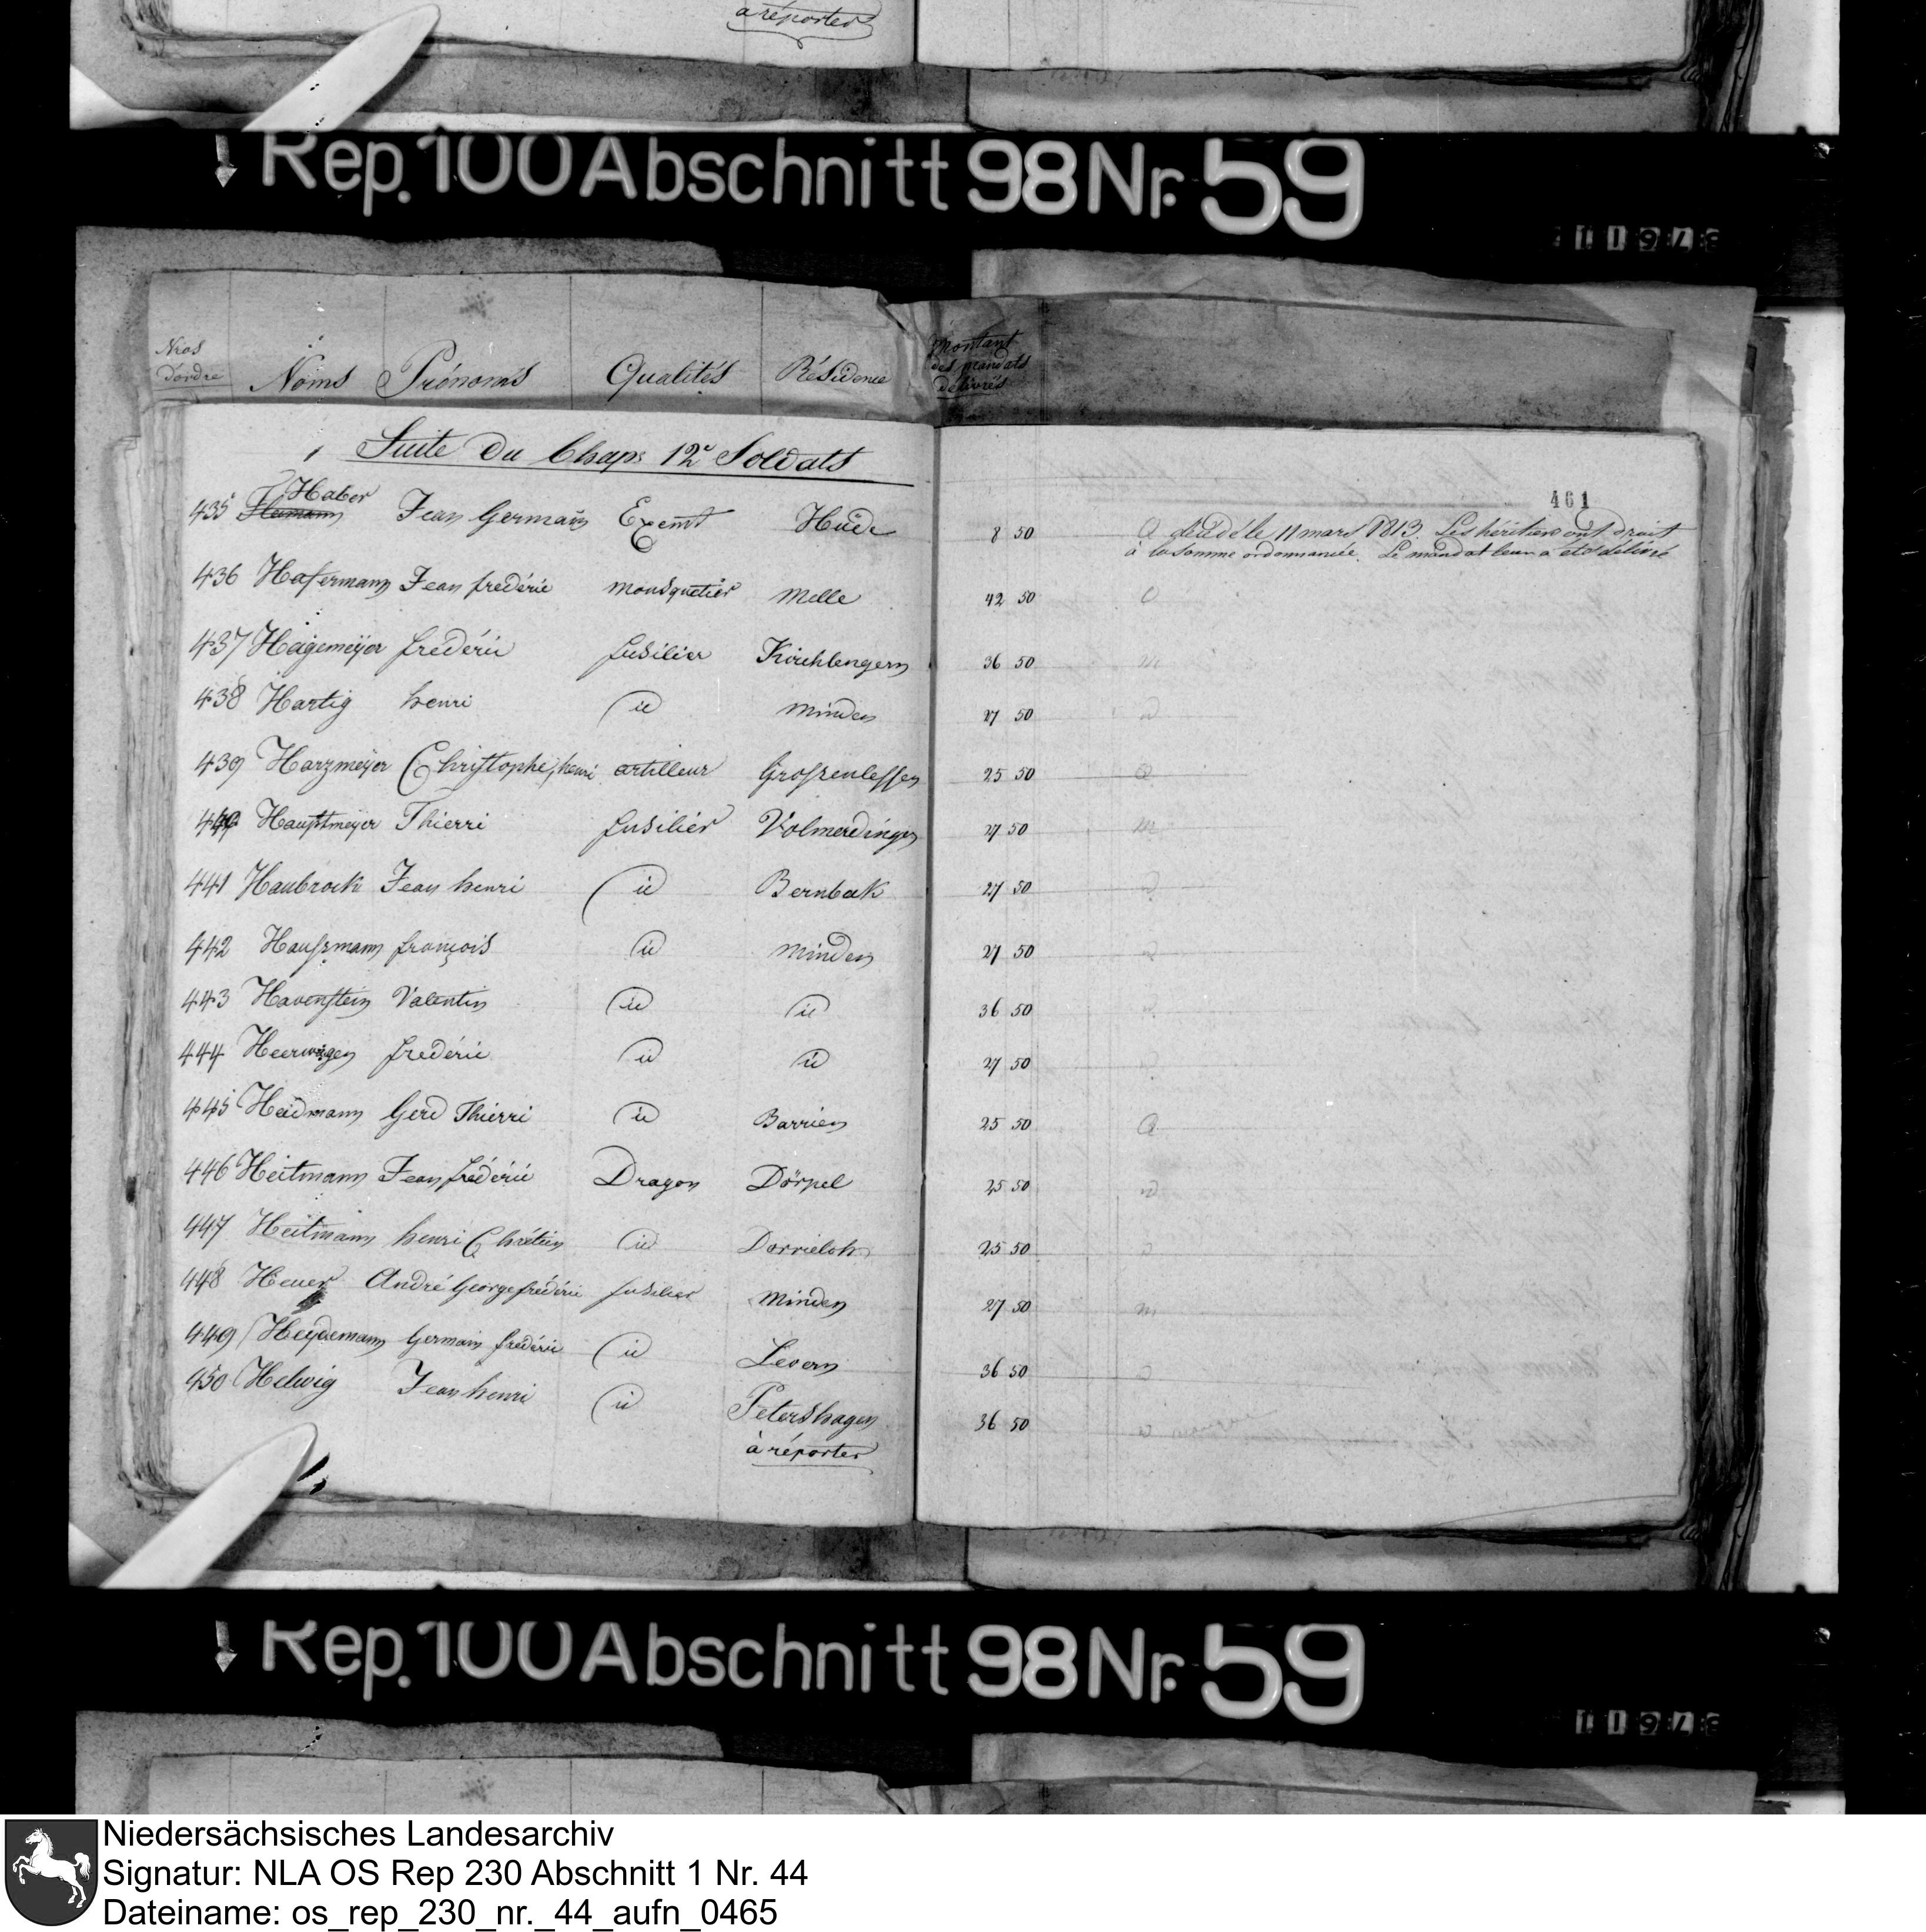 à réporter
Rep. 100 Abschnitt 98 Nr. 59
Nros d'ordre Noms Prénoms Qualités Résidence Montant des mandats délivrés
Suite du Chap. 12e Soldats
461
Haber
435 Jean Germain Exemt Hude 8 50 a décédé le 11 mars 1813. Les héritiers ont droit
à la somme ordonnancée. Le mandat leur a été délivré
436 Hafermann Jean frédéric mousquetier Melle 42 50
437 Hagemeÿer frédéric fusilier Kirchlengern 36 50 m
438 Hartig henri id minden 27 50
439 Harzmeÿer Christophe, henri artilleur Grossenlessen 25 50
440 Hauptmeyer Thierri fusilier Volmerdingen 27 50 m
441 Haubrock Jean henri id Bernbeck 27 50
442 Haussmann françois id minden 27 50
443 Havenstein Valentin id id 36 50
444 Heerwagen frédéric id id 27 50
445 Heidmann Gerd Thierri id Barrien 25 50
446 Heitmann Jean frédéric Dragon Dörpel 25 50
447 Heitmann henri Chrétien id Dorrieloh 25 50
448 Heuer André George frédéric fusilier minden 27 50 m
449 Heydemann Germain frédéric id Levern 36 50
450 Helwig Jean henri id Petershagen 36 50
à réporter
Rep. 100 Abschnitt 98 Nr. 59
Niedersächsisches Landesarchiv
Signatur: NLA OS Rep 230 Abschnitt 1 Nr. 44
Dateiname: os_rep_230_nr._44_aufn_0465